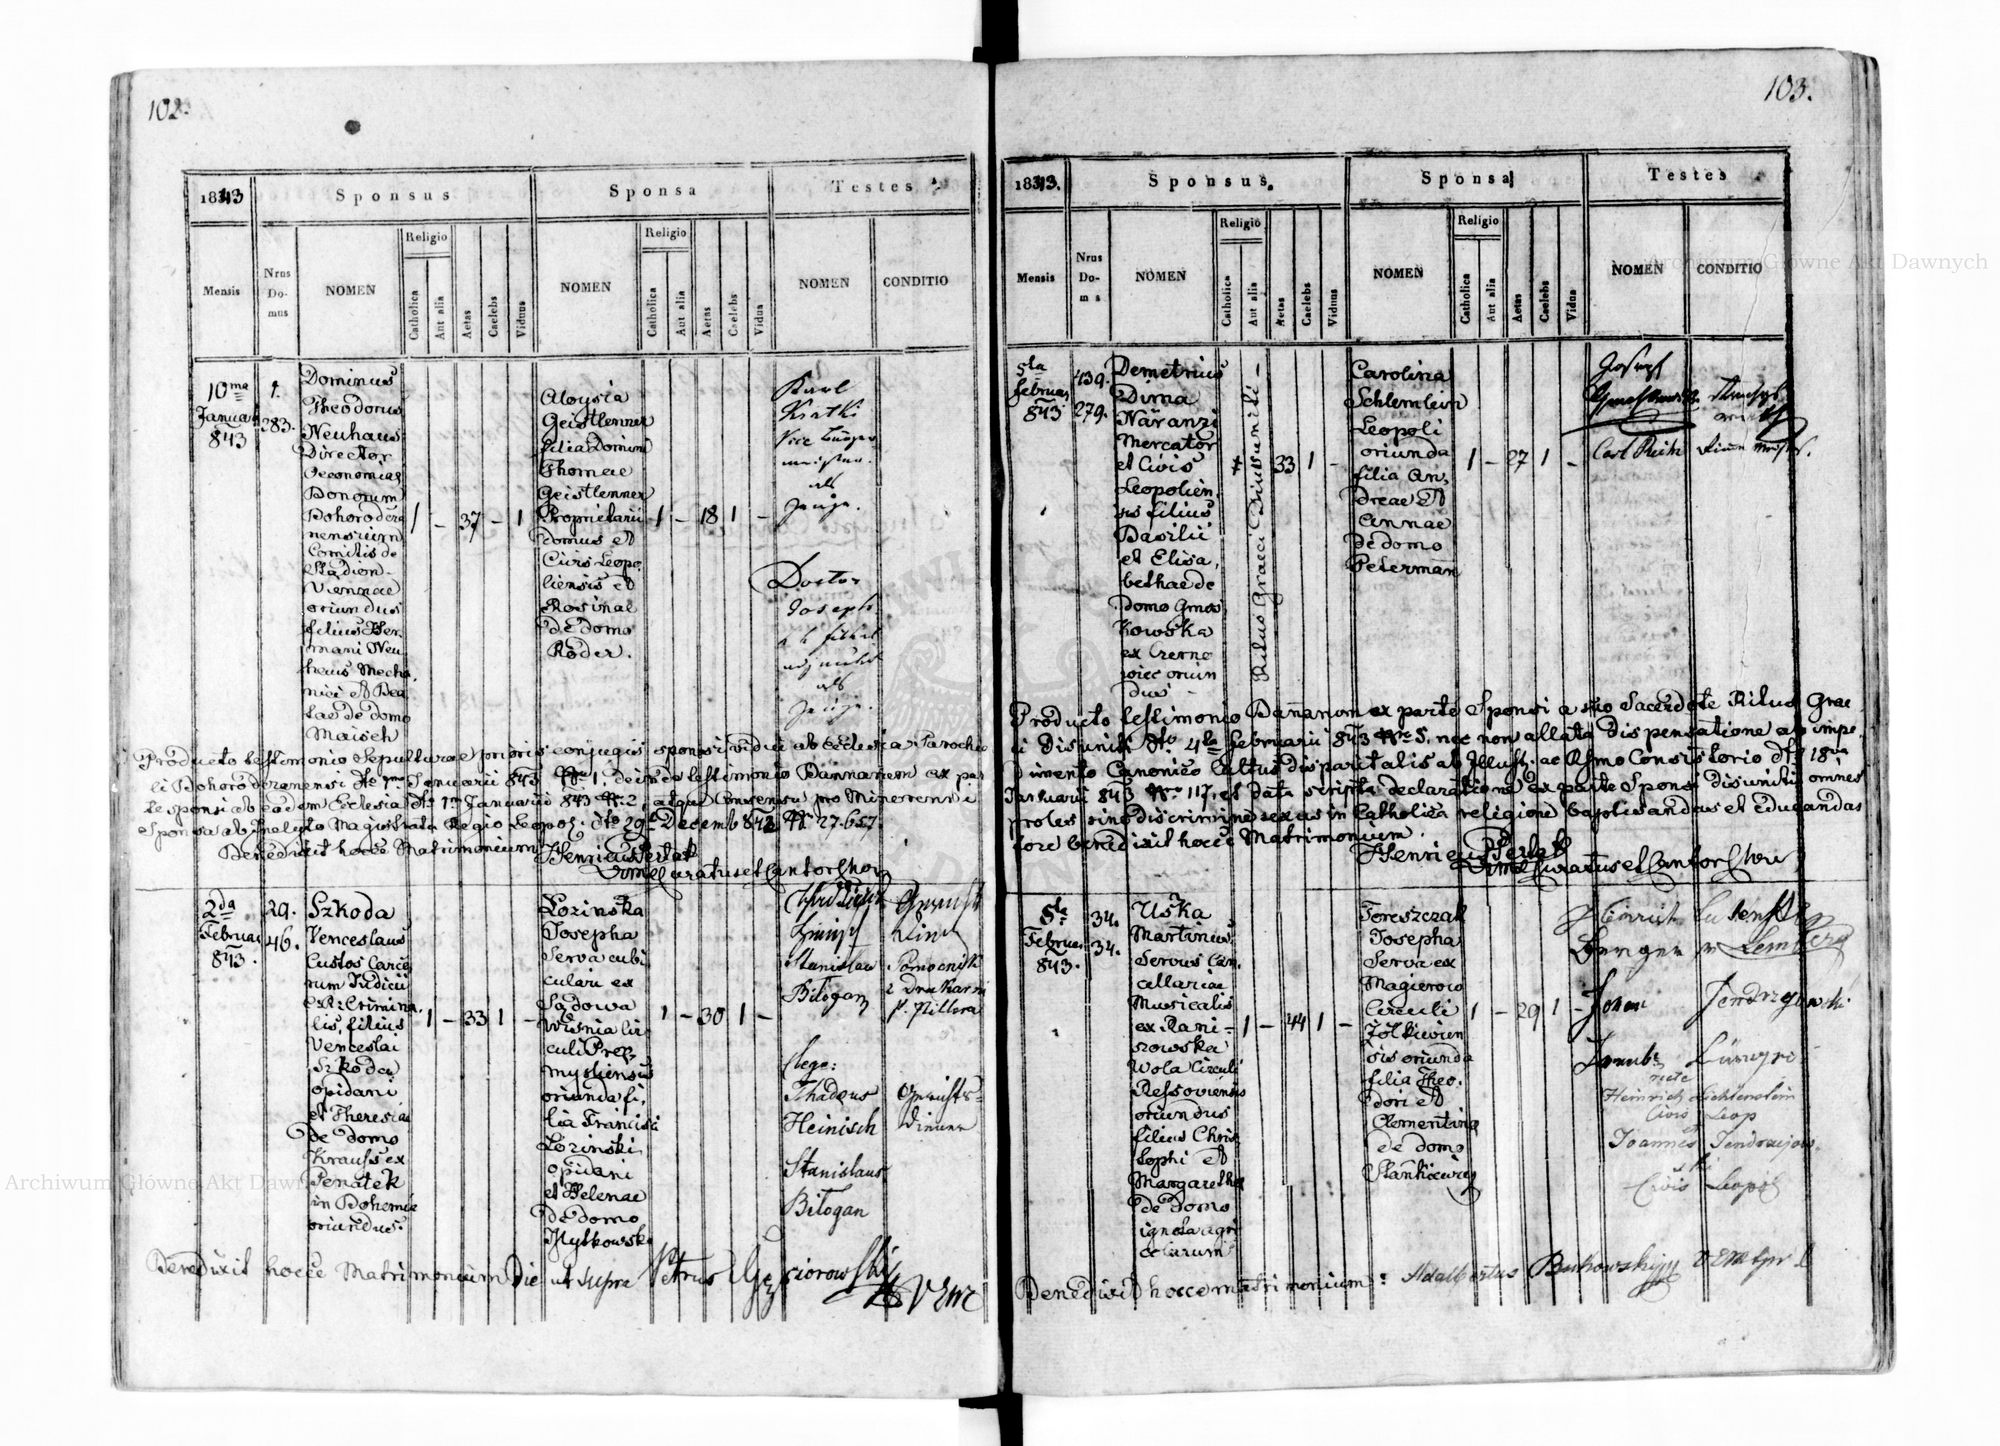 102.
1843
Sponsus
Sponsa
Testes
Mensis
Nrus
Do-
mus
NOMEN
Religio
Catholica
Aut alia
Aetas
Caelebs
Viduus
NOMEN
Religio
Catholica
Aut alia
Aetas
Caelebs
Vidua
NOMEN
CONDITIO
10ma
Januar
843
1.
283.
Dominus
Theodorus
Neuhaus
Director
Oeconomiae
Bonorum
Bohorodcza
nensium
Comitis de
Stadion
Viennae
oriundus
filius Her-
mani Neu
haus Mecha
nici et Bea
tae de domo
Maisch
1 - 37 - 1
Aloysia
Geistlenner
filia Domini
Thomae
Geistlenner
Proprietarii
domus et
Civis Leopo
liensis et
Rosinae
de domo
Röder.
1 - 18 1 -
Karl
Kratki
Vice Bürger
meister
als
Zeuge.
Doctor
Joseph
als
Zeuge.
Producto testimonio Sepulturae prioris conjugis sponsi vidui ab Ecclesia Parochia
li Bohorodczanensi dto 1ma Januarii 843 Nro 1. deinde testimonio Bannorum ex par
te sponsi ab eadem Ecclesia dto 1ma Januarii 843 Nr. 2, atque Consensu pro Minorenni
sponsa ab Inclyto Magistratu Regio Leopol. dto 29 Decemb 842 Nr 27.657
Benedixit hocce Matrimonium Henricus Perlak
Curatus et Cantor Chori
2da
Februar
843.
29.
46.
Szkoda
Venceslaus
Custos Carce
rum Judicii
Crimina
lis, filius
Venceslai
Szkoda
opidani
et Theresiae
de domo
Krauss ex
Senatek
in Bohemia
oriundus.
1 - 33 1 -
Łozinska
Josepha
Serva cubi
cularii ex
Sądowa
Wisnia Cir
culi Prze
mysliensis
oriunda fi-
lia Francisci
Łozinski
opidani
et Helenae
de domo
Hytkowska
1 - 30 1 -
Stanisław
Bilogan
Pomocnik
z Drukarni
P. Pillera
lege:
Thadeus
Heinisch
Gerichts-
diener
Stanislaus
Bilogan
Benedixit hocce Matrimonium Die ut supra Petrus Gąsiorowski
103.
1843.
Sponsus.
Sponsa
Testes
Mensis
Nrus
Do-
mus
NOMEN
Religio
Catholica
Aut alia
Aetas
Caelebs
Viduus
NOMEN
Religio
Catholica
Aut alia
Aetas
Caelebs
Vidua
NOMEN
CONDITIO
5ta
Februar
843
439.
279.
Demetrius
Dima
Näranzi
Mercator
et Civis
Leopolien
sis filius
Basilii
et Elisa
bethae de
domo Gmos
kowska
ex Czerno
wiec oriun
dus
Ritus Graeci Disuniti -
33 1 -
Carolina
Schlemlein
Leopoli
oriunda
filia An-
dreae et
Annae
de domo
Peterman
1 - 27 1 -
Joseph
Carl
Producto testimonio Bannorum ex parte Sponsi a suo Sacerdote Ritus Grae
ci disuniti dto 4ta Februarii 843 Nro 5. nec non allata dispensatione ab impe
dimento Canonico Cultus disparitatis ab Illust. ac Rsmo Consistorio dto 18va
Januarii 843 Nro 117. et data scripta declaratione ex parte Sponsi disuniti omnes
proles sine discrimine sexus in Catholica religione baptisandas et educandas
fore benedixit hocce Matrimonium.
Henricus Perlak
Curatus et Cantor Chori
5ta
Februar
843.
34.
34.
Uśka
Martinus
Servus Can
cellariae
Musicalis
ex Rani-
szowska
Wola Circuli
Ressoviensis
oriundus
filius Chris
tophi et
Margarethae
de domo
ignota agri
colarum
1 - 44 1 -
Tereszczak
Josepha
Serva ex
Magierow
Circuli
Żołkievien
sis oriunda
filia Theo-
dori et
Clementina
de domo
Stankiewicz
1 - 29 1 -
Heinrich
Lemberg
Jendrzejowski
recte
Heinrich Lichtenstein
Civis Leop
Joannes Jendrzejow-
ski
Civis Leopol
Benedixit hocce matrimonium: Adalbertus Buchowski
Archiwum Główne Akt Dawnych
Archiwum Główne Akt Dawnych